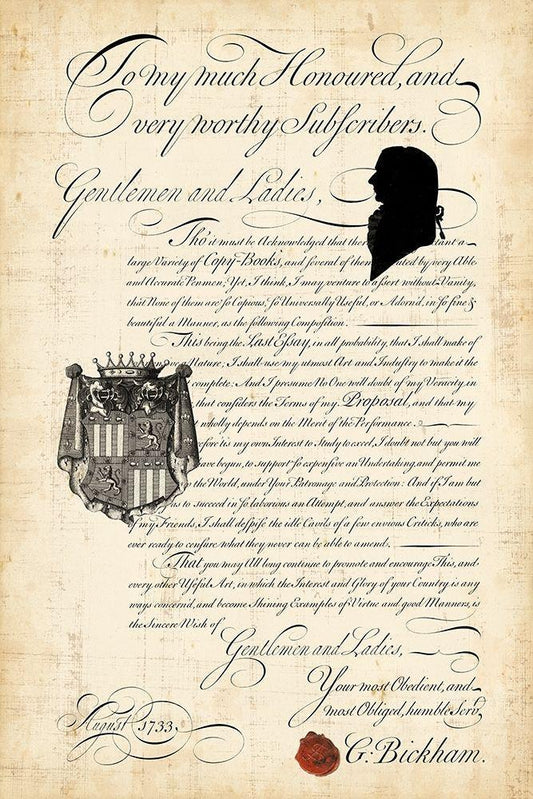 To my much Honoured, and
very worthy Subſcribers.
Gentlemen and Ladies,
Tho' it must be Acknowledged that the tant a
large Variety of Copy-Books, and ſeveral of them ated by very Able
and Accurate Penmen; Yet, I think, I may venture to aſsert without Vanity,
that None of them are ſo Copious, ſo Universally Uſeful, or Adorn'd, in ſo fine &
beautiful a Manner, as the following Compoſition.
This being the Last Eſsay, in all probability, that I shall make of
Nature, I shall use my utmost Art and Induſtry to make it the
complete: And I preſume No One will doubt of my Veracity, in
that conſiders the Terms of my Proposal, and that my
wholly depends on the Merit of the Performance.
efore 'tis my own Interest to Study to excel, I doubt not but you will
ave begun, to ſupport ſo expenſive an Undertaking, and permit me
the World, under Your Patronage and Protection: And if I am but
as to succeed in ſo laborious an Attempt, and answer the Expectations
of my Friends, I shall deſpiſe the idle Cavils of a few envious Criticks, who are
ever ready to cenſure what they never can be able to amend.
That you may All long continue to promote and encourage This, and
every other Uſeful Art, in which the Interest and Glory of your Country is any
ways concern'd, and become Shining Examples of Virtue and good Manners, is
the Sincere Wish of
Gentlemen and Ladies,
Your most Obedient, and
most Obliged, humble Serv.
August 1733.
G: Bickham.